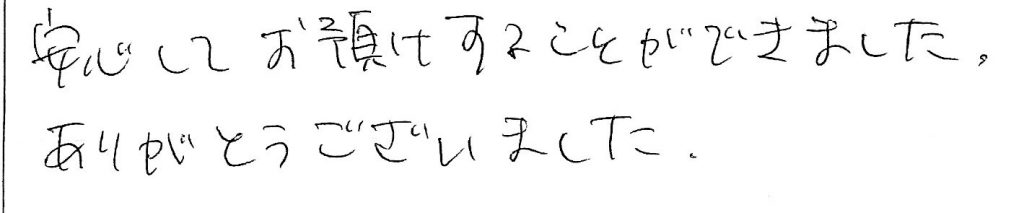 安心してお預けすることができました。
ありがとうございました.